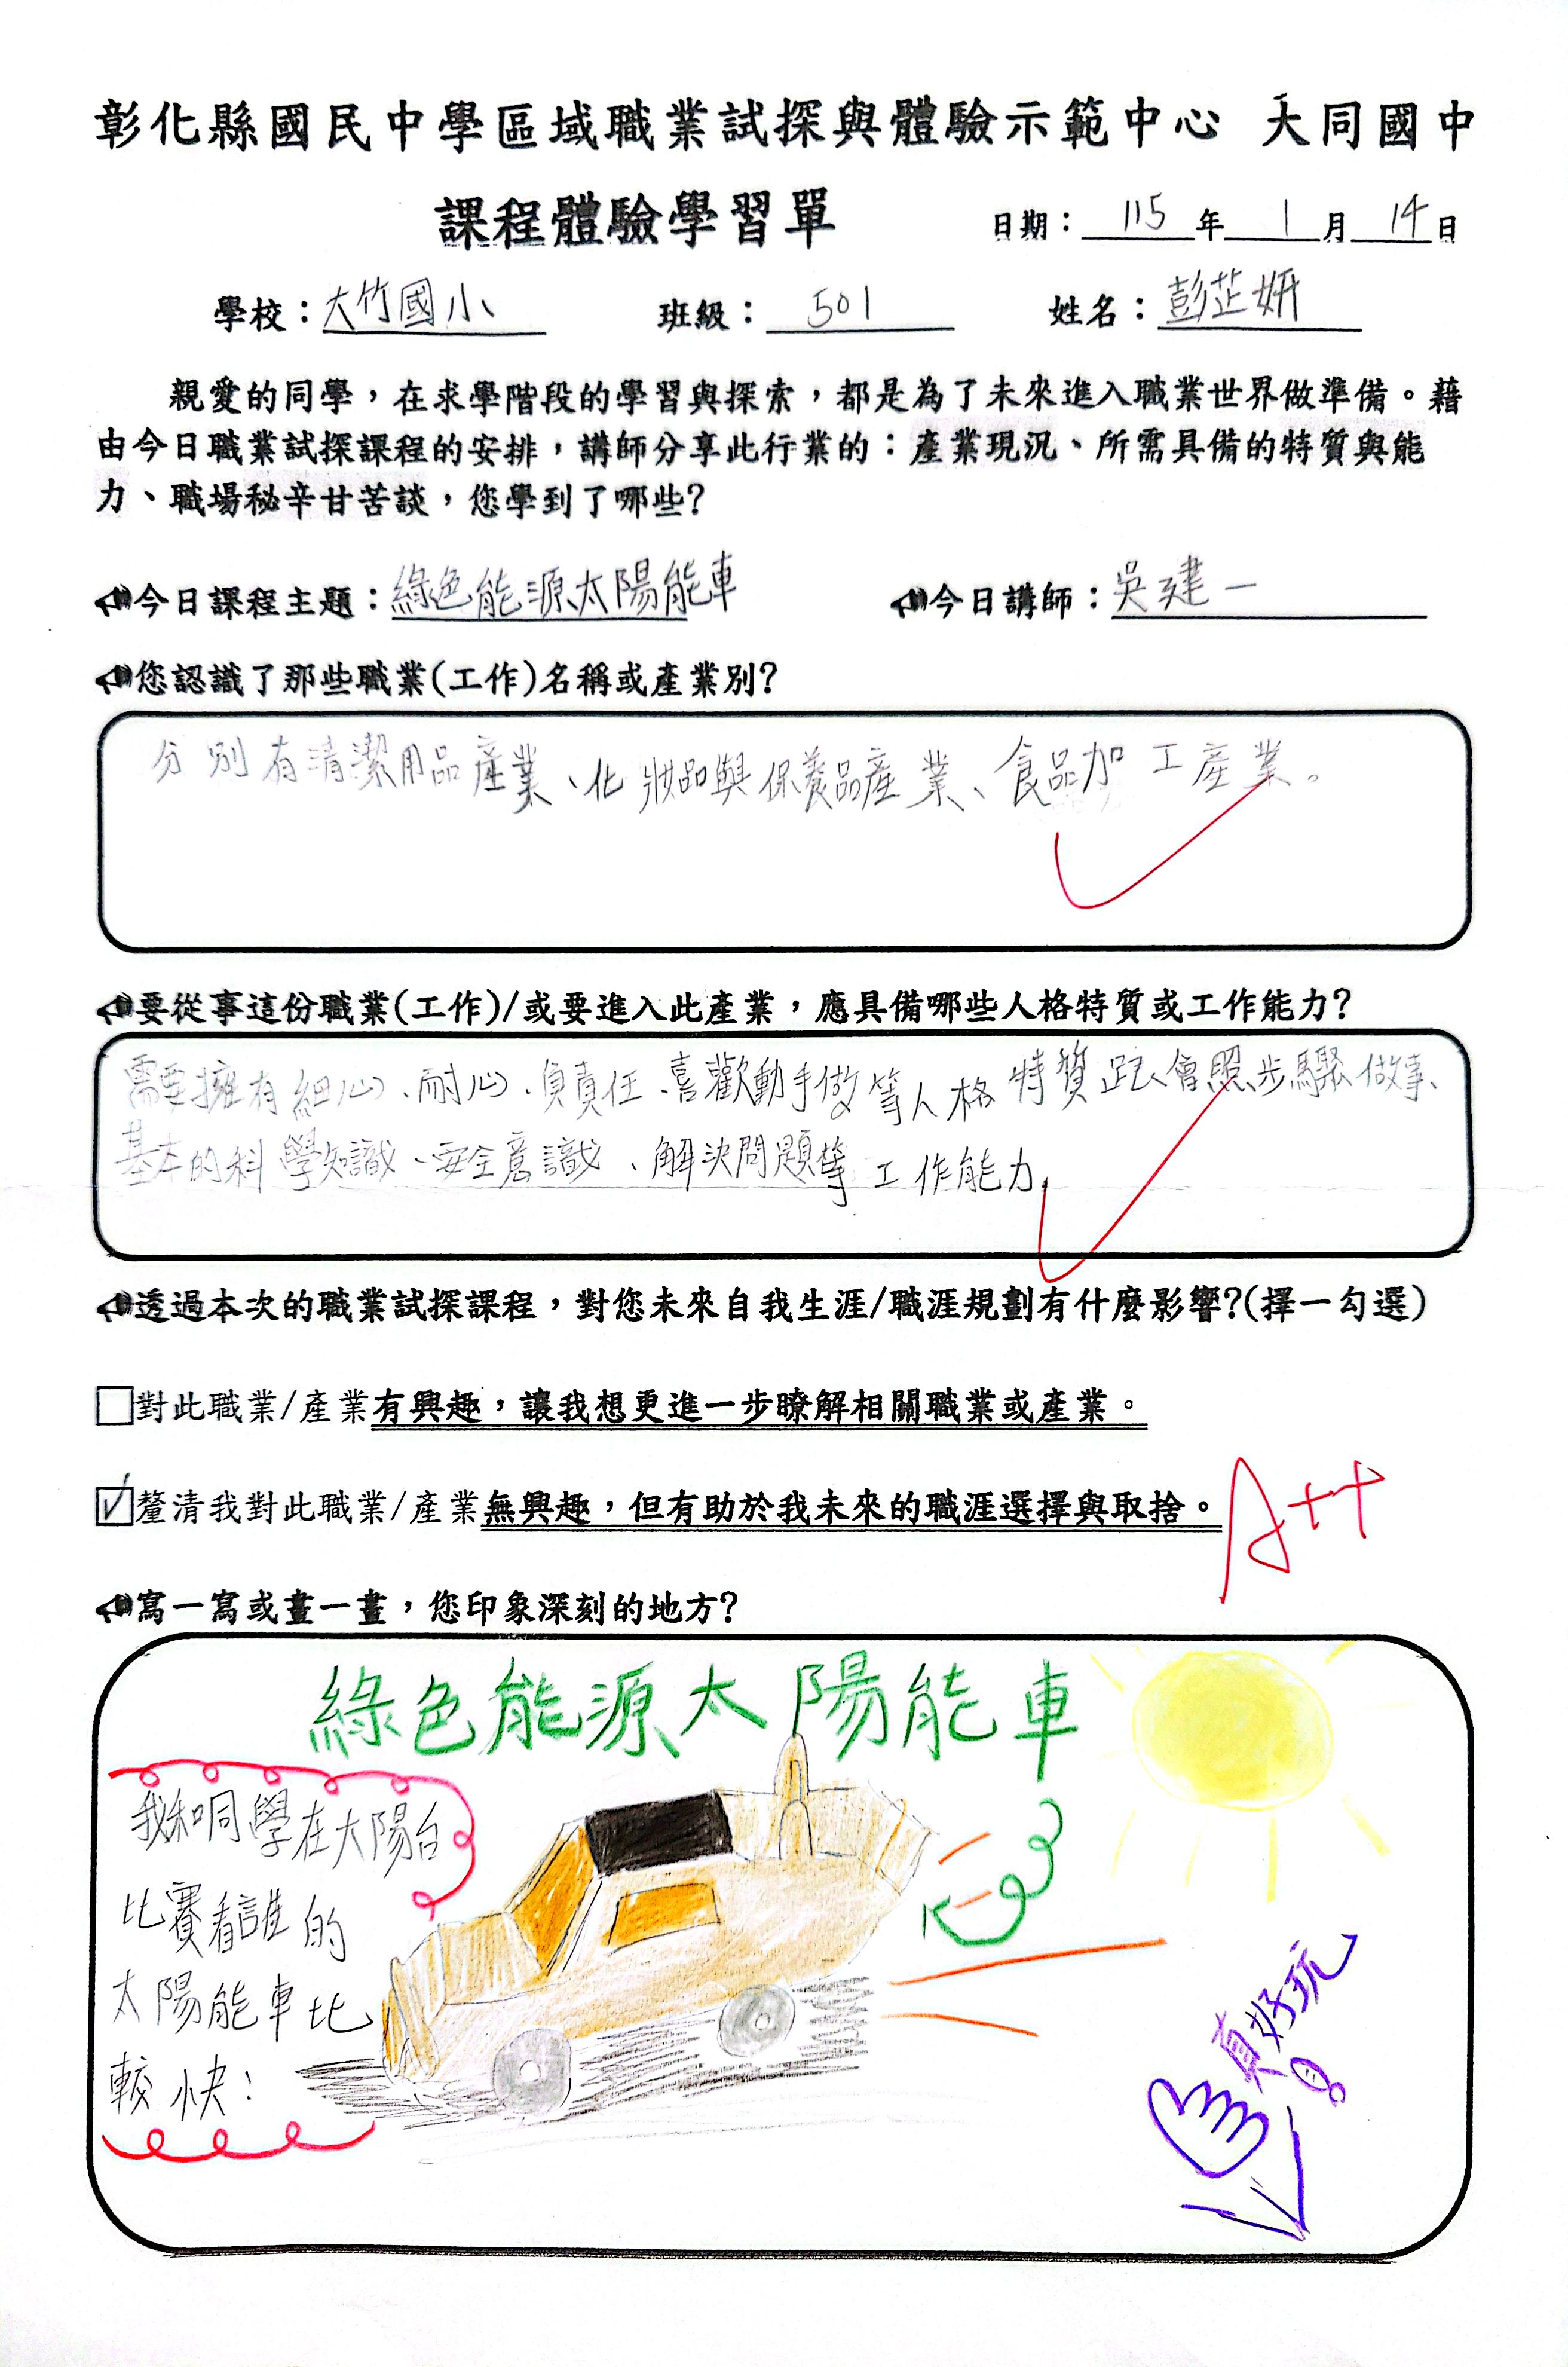 彰化縣國民中學區域職業試探與體驗示範中心 大同國中
課程體驗學習單
日期：115年1月14日
學校：大竹國小 班級：501 姓名：彭芷妍
親愛的同學，在求學階段的學習與探索，都是為了未來進入職業世界做準備。藉
由今日職業試探課程的安排，講師分享此行業的：產業現況、所需具備的特質與能
力、職場秘辛甘苦談，您學到了哪些?
今日課程主題：綠色能源太陽能車 今日講師：吳建一
您認識了那些職業(工作)名稱或產業別?
分別有清潔用品產業、化妝品與保養品產業、食品加工產業。
要從事這份職業(工作)/或要進入此產業，應具備哪些人格特質或工作能力?
需要擁有細心、耐心、負責任、喜歡動手做等人格特質跟會照步驟做事、
基本的科學知識、安全意識、解決問題等工作能力。
透過本次的職業試探課程，對您未來自我生涯/職涯規劃有什麼影響?(擇一勾選)
□對此職業/產業有興趣，讓我想更進一步瞭解相關職業或產業。
☑釐清我對此職業/產業無興趣，但有助於我未來的職涯選擇與取捨。
A++
寫一寫或畫一畫，您印象深刻的地方?
綠色能源太陽能車
我和同學在大陽台
比賽看誰的
太陽能車比
較快！
真好玩！